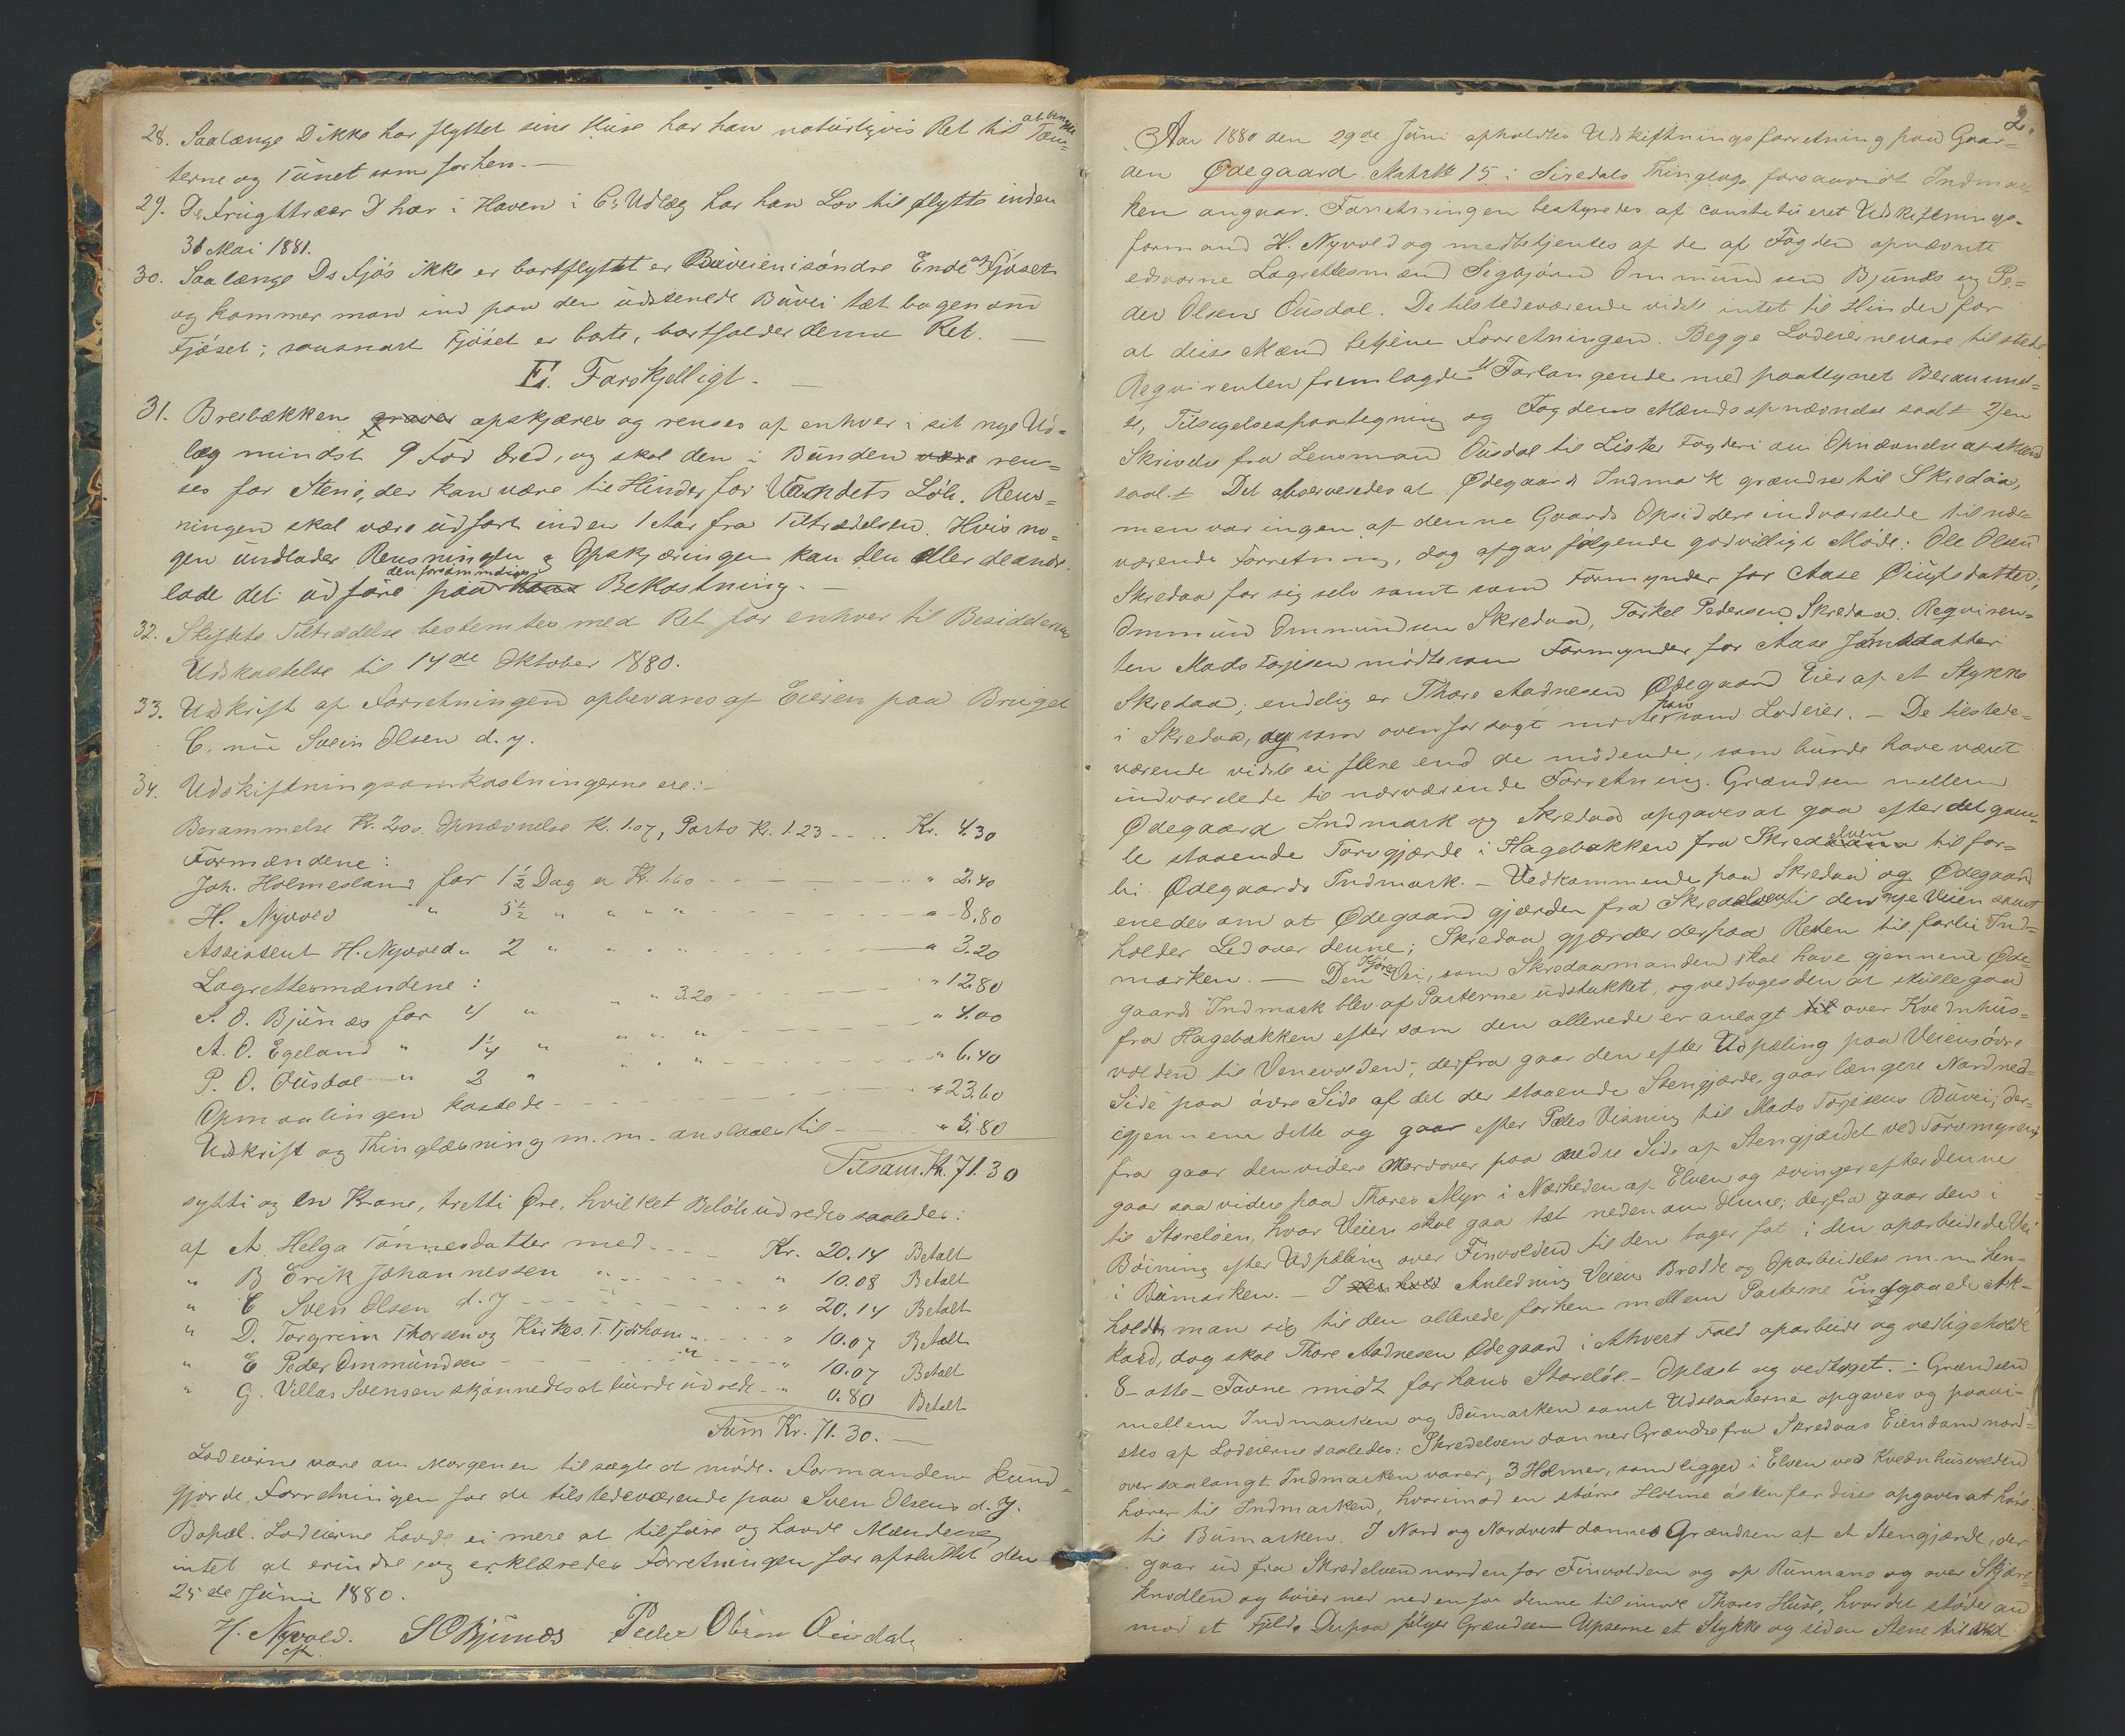 28. Saalænge D ikke har flyttet sine Huse har han naturligvis Ret til at benytte Tom=
terne og Tunet som forhen.—
29. De Frugttræer D har i Haven i C's Udlæg har han Lov til flytte inden
31 Mai 1881.
30. Saalænge Ds Fjøs ikke er bortflyttet er Buveien i søndre Ende af Fjøset
og kommer man ind paa den udstenede Buvei tæt bagenom
Fjøset; saasnart Fjøset er borte, bortfalder denne Ret. —
E. Forskjelligt. —
31. Breibækken graves opskjæres og renses af enhver i sit nye Ud=
læg mindst 9 Fod bred, og skal den i Bunden være ren=
ses for Stene, der kan være til Hinder for Vandets Løb. Rens=
ningen skal være udført inden 1 Aar fra Tiltrædelsen. Hvis no=
gen undlader Rensningen & Opskjæringen kan den eller de andre
lade det udføre paa den forsømmeliges hans Bekostning. —
32. Skiftets Tiltrædelse bestemtes med Ret for enhver til Besidderens
Udkastelse til 14de Oktober 1880.
33. Udskrift af Forretningen opbevares af Eieren paa Bruget
C. nu Svein Olsen d. y.
34. Udskiftningsomkostningerne ere:—
Berammelse Kr. 2.00. Opnævnelse Kr. 1.07, Porto Kr. 1.23 — .. Kr. 4.30
Formændene:
Joh. Holmesland for 1½ Dag a Kr. 1.60 — — — " 2.40
H. Nyvold " 5½ " " " " — — — " 8.80
Assistent H. Nyvold " 2 " " " " — — — " 3.20
Lagrettesmændene:
S. O. Bjunes for 4 " " " 3.20 — — — " 12.80
A. O. Egeland " 1¼ " " " " — — — " 4.00
P. O. Ousdal " 2 " " " " — — — " 6.40
Opmaalingen kostede — — — " 23.60
Udskrift og Thinglæsning m. m. anslaaes til — — " 5.80
Tilsam. Kr. 71.30
sytti og en Krone, tretti Øre, hvilket Beløb udredes saaledes:
af A. Helga Tønnesdatter med — — Kr. 20.14 Betalt
" B Erik Johannessen " — — " 10.08 Betalt
" C Sven Olsen d. y — — " 20.14 Betalt
" D. Torgrim Thorsen og Kirkes. T. Tjorhom " — " 10.07 Betalt
" E Peder Ommundsen — — " — " 10.07 Betalt
" G. Villas Svensen skjønnedes at burde udrede — " 0.80 Betalt
Sum Kr. 71.30. —
Lodeierne vare om Morgenen tilsagte at møde. Formanden kund=
gjorde Forretningen for de tilstedeværende paa Sven Olsens d. y.
Bopæl. Lodeierne havde ei mere at tilføie og havde Mændene
intet at erindre, og erklæredes Forretningen for afsluttet den
25de Juni 1880.
H. Nyvold. S O Bjunes Peder Olsen Ousdal
cst.
2.
Aar 1880 den 29de Juni opholdtes Udskiftningsforretning paa Gaar=
den Ødegaard Matr № 15 i Siredals Thinglag forsaavidt Indmar
ken angaar. Forretningen bestyredes af constitueret Udskiftnings=
formand H. Nyvold og medbetjentes af de af Fogden opnævnte
edsvorne Lagrettesmænd Sigbjørn Ommundsen Bjunes og Pe=
der Olsen Ousdal. De tilstedeværende vidste intet til Hinder for
at disse Mænd betjene Forretningen. Begge Lodeierne vare tilstede.
Reqvirenten fremlagde 1) Forlangende med paategnet Berammel=
se, Tilsigelsespaategning og Fogdens Mændsopnævnelse saalt 2) en
Skrivelse fra Lensmand Ousdal til Lister Fogderi om Opnævnelse af Mænd
saalt. Det observeredes at Ødegaards Indmark grændse til Skredaa,
men var ingen af denne Gaards Opsiddere indvarslede til nær=
værende Forretning, dog afgav følgende godvilligt Møde: Ole Olsen
Skredaa for sig selv samt som Formynder for Aase Ouufsdatter,
Ommund Ommundsen Skredaa, Torkel Pedersen Skredaa. Reqviren=
ten Mads Torjesen mødte som Formynder for Aase Jonsdatter
Skredaa; endelig er Thore Aadnesen Ødegaard Eier af et Stykke
i Skredaa, og som ovenfor sagt møder han som Lodeier. — De tilstede=
værende vidste ei flere end de mødende, som burde have været
indvarslede til nærværende Forretning. Grændsen mellem
Ødegaard Indmark og Skredaa opgaves at gaa efter det gam=
le staaende Torvgjærde i Hagebakken fra Skredelven til for=
bi Ødegaards Indmark. — Vedkommende paa Skredaa og Ødegaard
enedes om at Ødegaard gjærder fra Skredelven til den nye Veien samt
holder Led over denne; Skredaa gjærder derpaa Resten til forbi Ind=
marken. — Den Kjøre Vei, som Skredaamanden skal have gjennem Øde
gaards Indmark blev af Parterne udstukket, og vedtoges den at skulle gaa
fra Hagebakken eftersom den allerede er anlagt til over Kvednhus=
volden til Venevolden; derfra gaar den efter Udpæling paa Veiens øvre
Side paa øvre Side af det der staaende Stengjærde, gaar længere Nord ned=
igjennem dette og gaar efter Pæles Visning til Mads Torjesens Buvei; der=
fra gaar den videre Nordover paa nedre Side af Stengjærdet ved Torvmyren,
gaar saa videre paa Thores Myr i Nærheden af Elven og svinger efter denne
til Storeløen, hvor Veien skal gaa tæt nedenom denne; derfra gaar den i
Bøining efter Udpæling over Finvolden til den tager fat i den oparbeidede Vei
i Bumarken. — I Anledning Veiens Bredde og Oparbeidelse m. m. hen=
holdt man sig til den allerede forhen mellem Parterne indgaaede Ak=
kord, dog skal Thore Aadnesen Ødegaard i ethvert Fald oparbeide og vedligeholde
8 - otte - Favne midt for hans Storeløe. — Oplæst og vedtaget. : Grændsen
mellem Indmarken og Bumarken samt Udslaatterne opgaves og paavi=
stes af Lodeierne saaledes: Skredelven danner Grændse fra Skredaas Eiendom nord=
over saalangt Indmarken varer, 3 Holmer, som ligger i Elven ved Kvednhusvolden
hører til Indmarken, hvorimod en større Holme østenfor disse opgaves at høre
til Bumarken. I Nord og Nordvest dannes Grændsen af et Stengjærde, der
gaar ud fra Skredelven nordenfor Finvolden og op Runnane og over Skjære=
knodlen og bøier ned nedenfor denne til imod Thores Huse, hvor det støder an
mod et Fjeld. Derpaa følger Grændsen Upserne et Stykke og siden Stene til